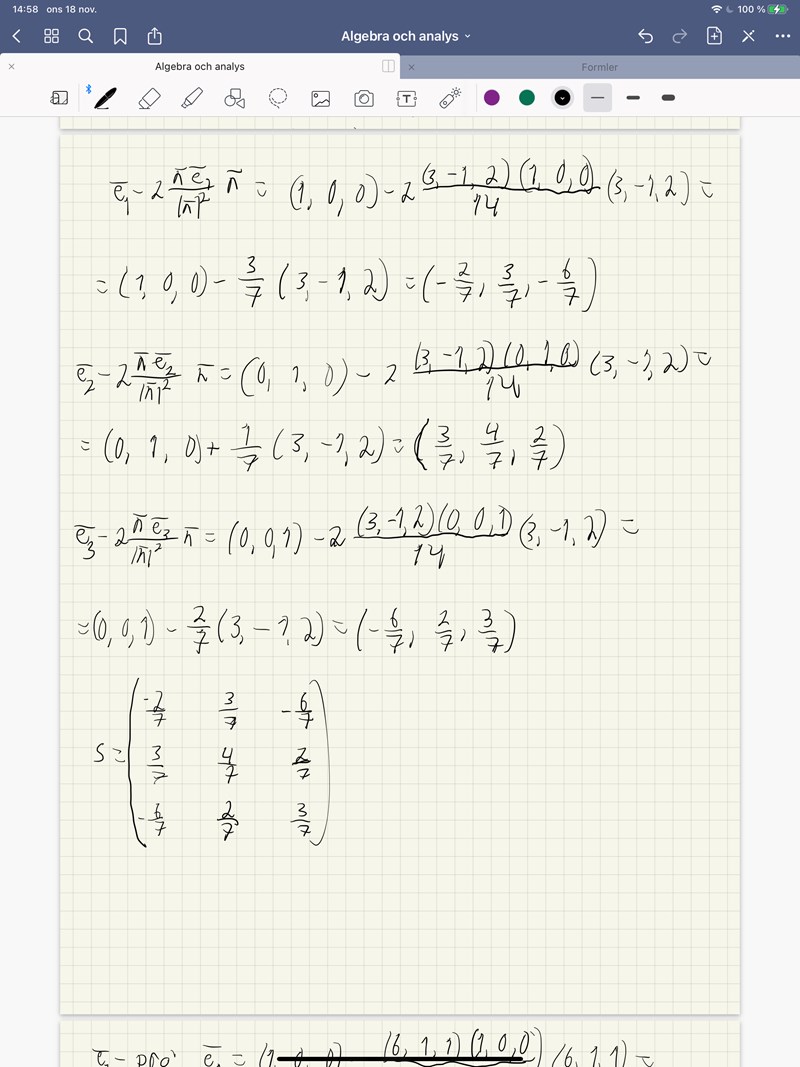 14:58 ons 18 nov. 100 %
Algebra och analys
Algebra och analys
Formler
ē₁ - 2 n̄ē₁/|n̄|² n̄ = (1, 0, 0) - 2 (3, -1, 2)(1, 0, 0)/14 (3, -1, 2) =
= (1, 0, 0) - 3/7 (3, -1, 2) = (-2/7, 3/7, -6/7)
ē₂ - 2 n̄ē₂/|n̄|² n̄ = (0, 1, 0) - 2 (3, -1, 2)(0, 1, 0)/14 (3, -1, 2) =
= (0, 1, 0) + 1/7 (3, -1, 2) = (3/7, 4/7, 2/7)
ē₃ - 2 n̄ē₃/|n̄|² n̄ = (0, 0, 1) - 2 (3, -1, 2)(0, 0, 1)/14 (3, -1, 2) =
= (0, 0, 1) - 2/7 (3, -1, 2) = (-6/7, 2/7, 3/7)
-2/7 3/7 -6/7
S = 3/7 4/7 2/7
-6/7 2/7 3/7
(6, 1, 1)(1, 0, 0) (6, 1, 1) =